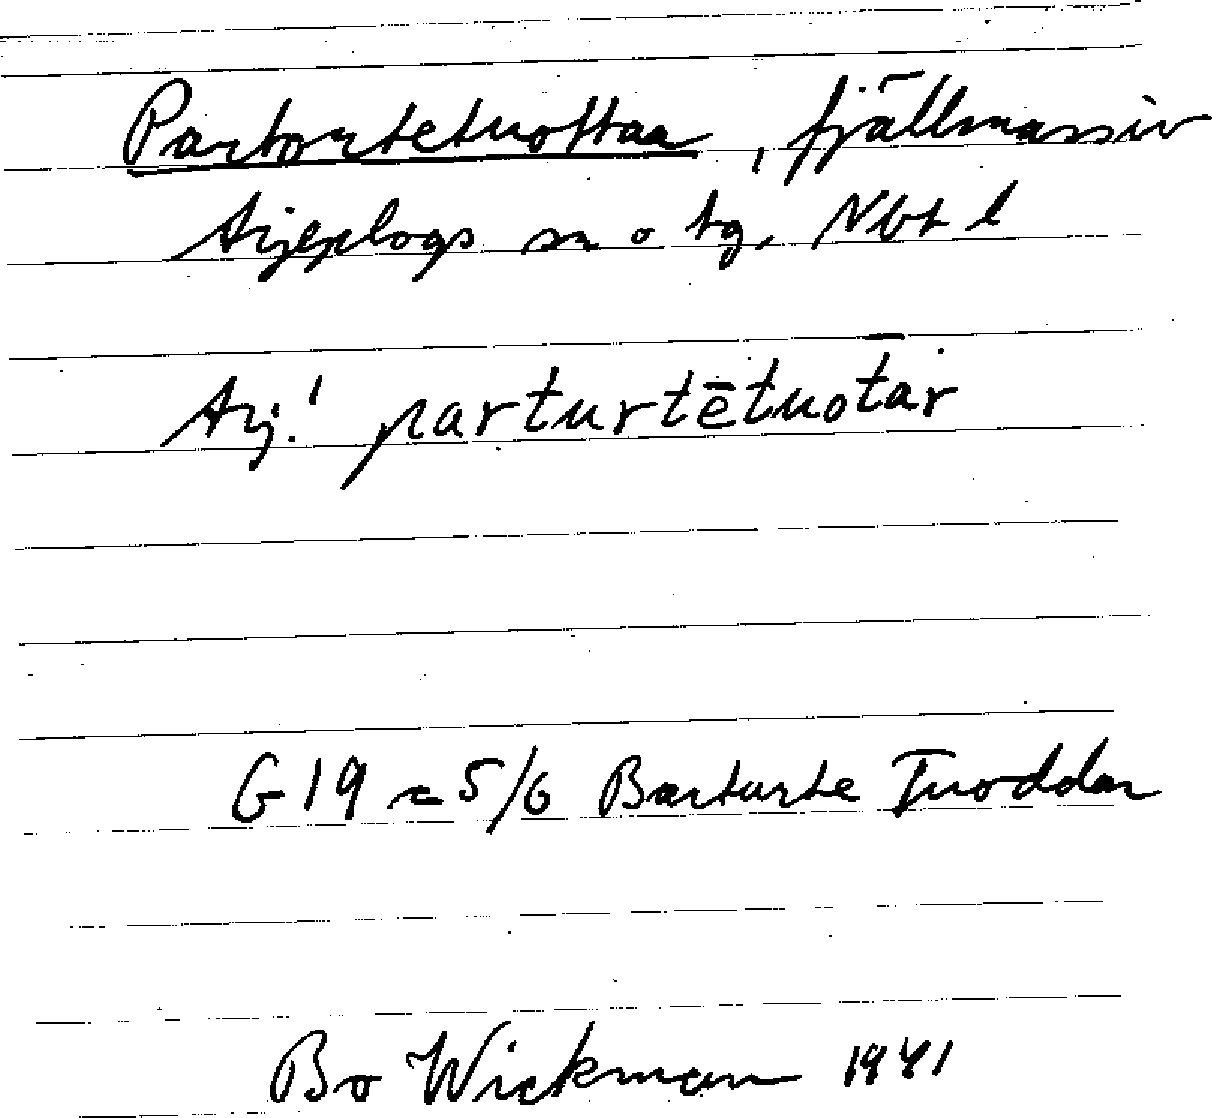 Partortetuottaa, fjällmassiv
Arjeplogs sn o tg, Nbt l
Arj.' parturtētuotar
G 19 c 5/6 Barturte Tuoddar
Bo Wickman 1941